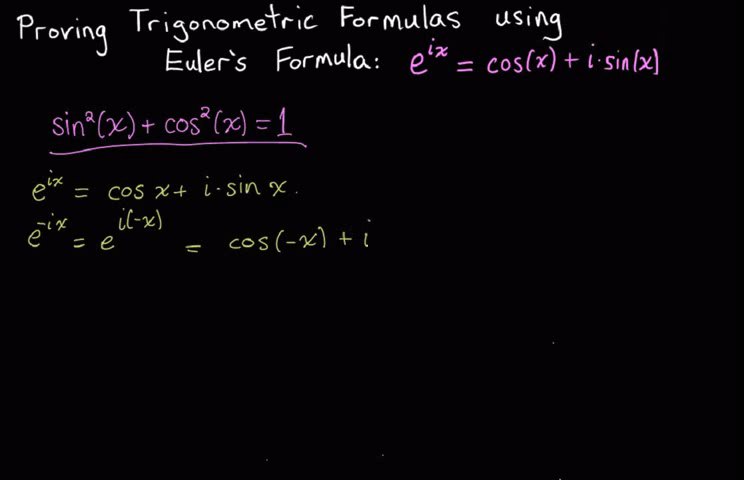 Proving Trigonometric Formulas using
Euler's Formula: e^{ix} = cos(x) + i·sin(x)
sin²(x) + cos²(x) = 1
e^{ix} = cos x + i·sin x.
e^{-ix} = e^{i(-x)} = cos(-x) + i